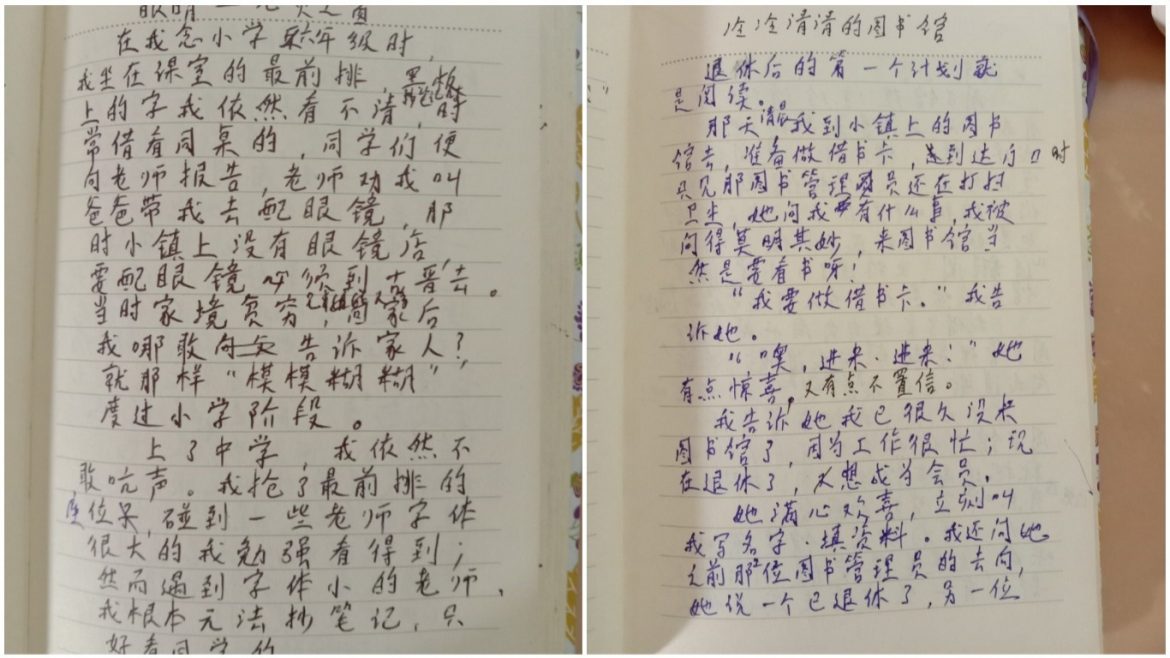 眼睛
在我念小学六年级时，
我坐在课室的最前排，黑板
上的字我依然看不清，时
常借看同桌的，同学们便
向老师报告，老师劝我叫
爸爸带我去配眼镜，那
时小镇上没有眼镜店，
要配眼镜必须到古晋去。
当时家境贫穷，回家后
我哪敢告诉家人？
就那样“模模糊糊”
度过小学阶段。
上了中学，我依然不
敢吭声。我抢了最前排的
座位坐，碰到一些老师字体
很大的我勉强看得到；
然而遇到字体小的老师，
我根本无法抄笔记，只
好看同学的
冷冷清清的图书馆
退休后的第一个计划就
是阅读。
那天清晨我到小镇上的图书
馆去，准备做借书卡，到达门口时
只见那图书管理员还在打扫
卫生，她问我有什么事，我被
问得莫明其妙，来图书馆当
然是要看书呀！
“我要做借书卡。”我告
诉她。
“噢，进来，进来！”她
有点惊喜，又有点不置信。
我告诉她我已很久没来
图书馆了，因为工作很忙；现
在退休了，又想成为会员。
她满心欢喜，立刻叫
我写名字、填资料。我还问她
之前那位图书管理员的去向，
她说一个已退休了，另一位